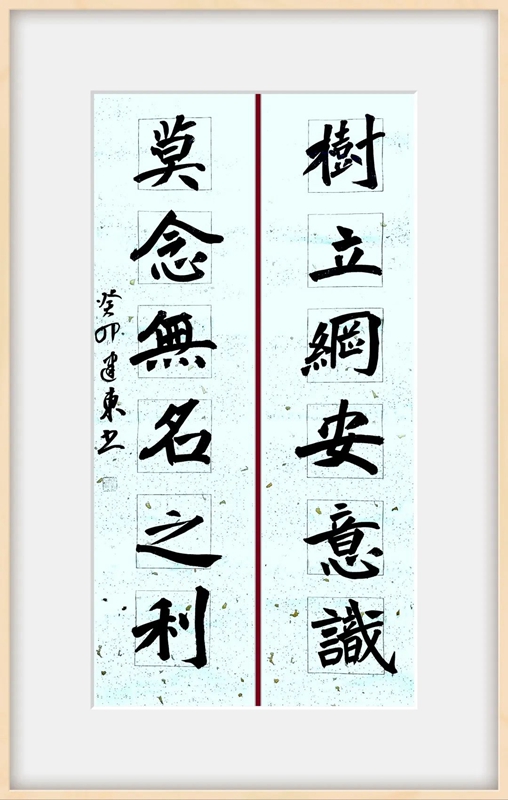 樹立綱安意識
莫念無名之利
癸卯建東书